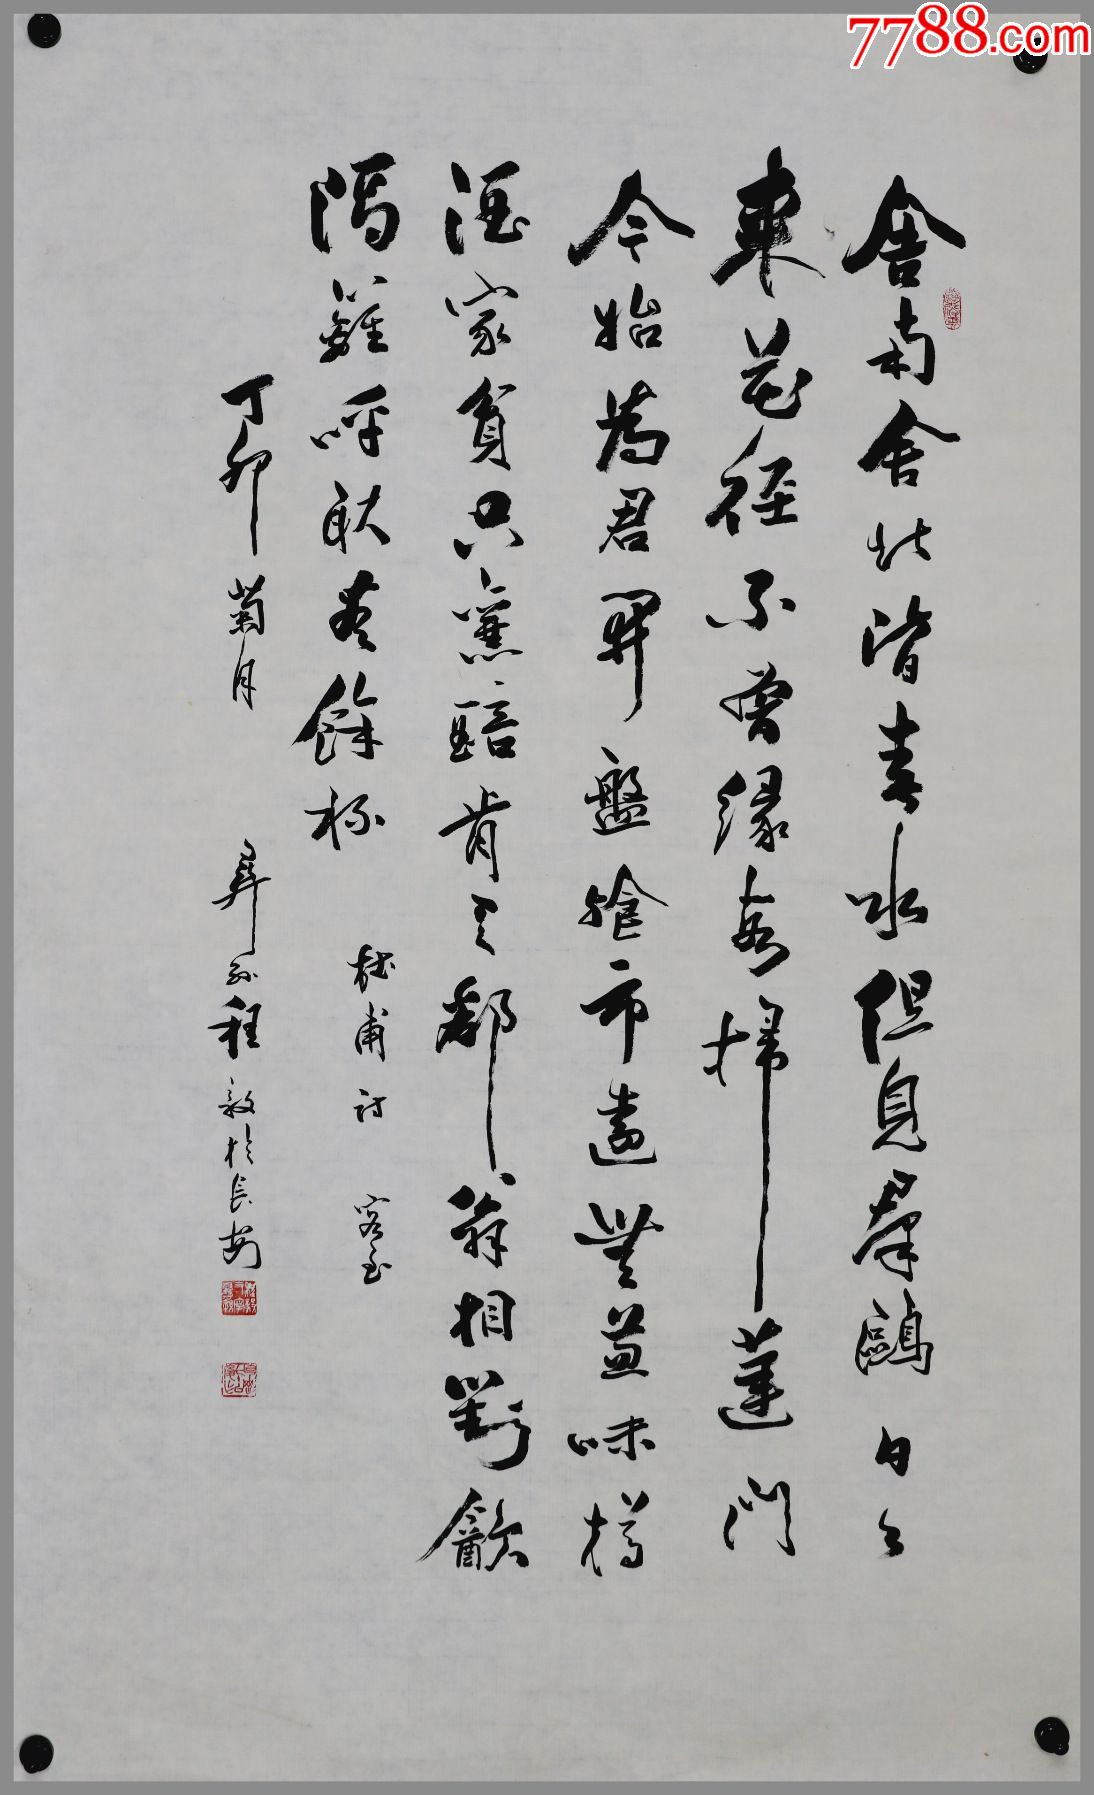 7788.com
舍南舍北皆春水但見羣鷗日々
來花徑不曾緣客掃蓬門
今始為君開盤飧市遠無兼味樽
酒家貧只舊醅肯与鄰翁相對飲
隔籬呼取盡餘杯
杜甫詩 客至
丁卯菊月 孙程於長安